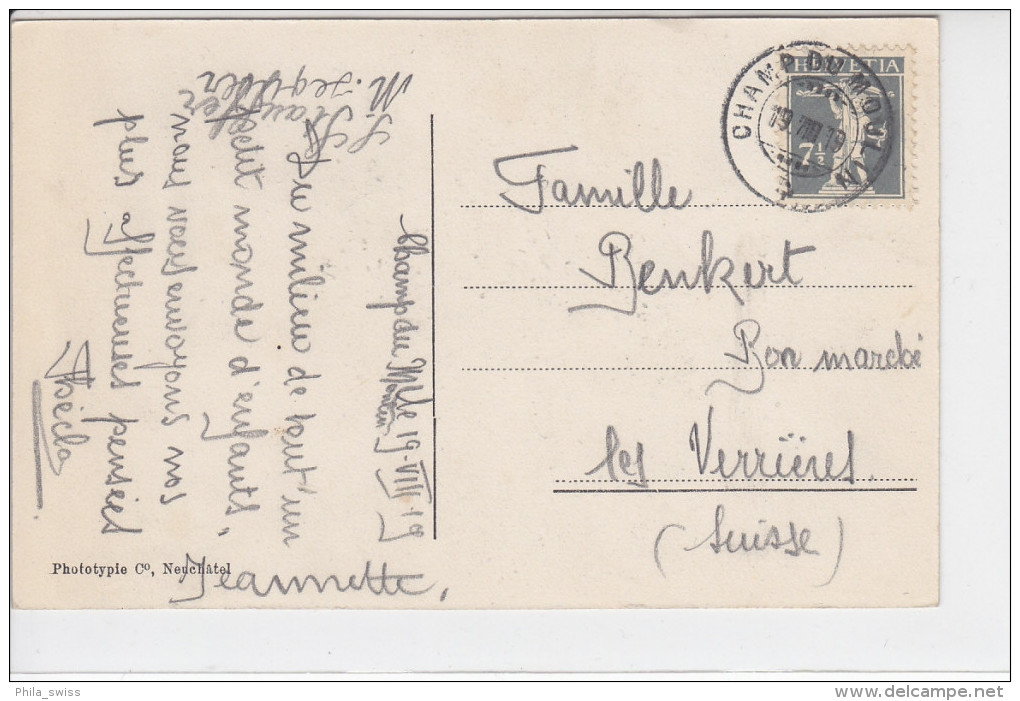 Champ du Mlin
19-VIII-19
Du milieu de tout un
petit monde d'enfants,
nous vous envoyons nos
plus affectueuses pensées
Thécla
Jeannette,
Famille
Benkert
Bon marché
les Verrières
(Suisse)
HELVETIA
7½
CHAMP DU MOULIN
19 VIII 19
Phototypie Co, Neuchâtel
Phila_swiss
http://www.delcampe.net